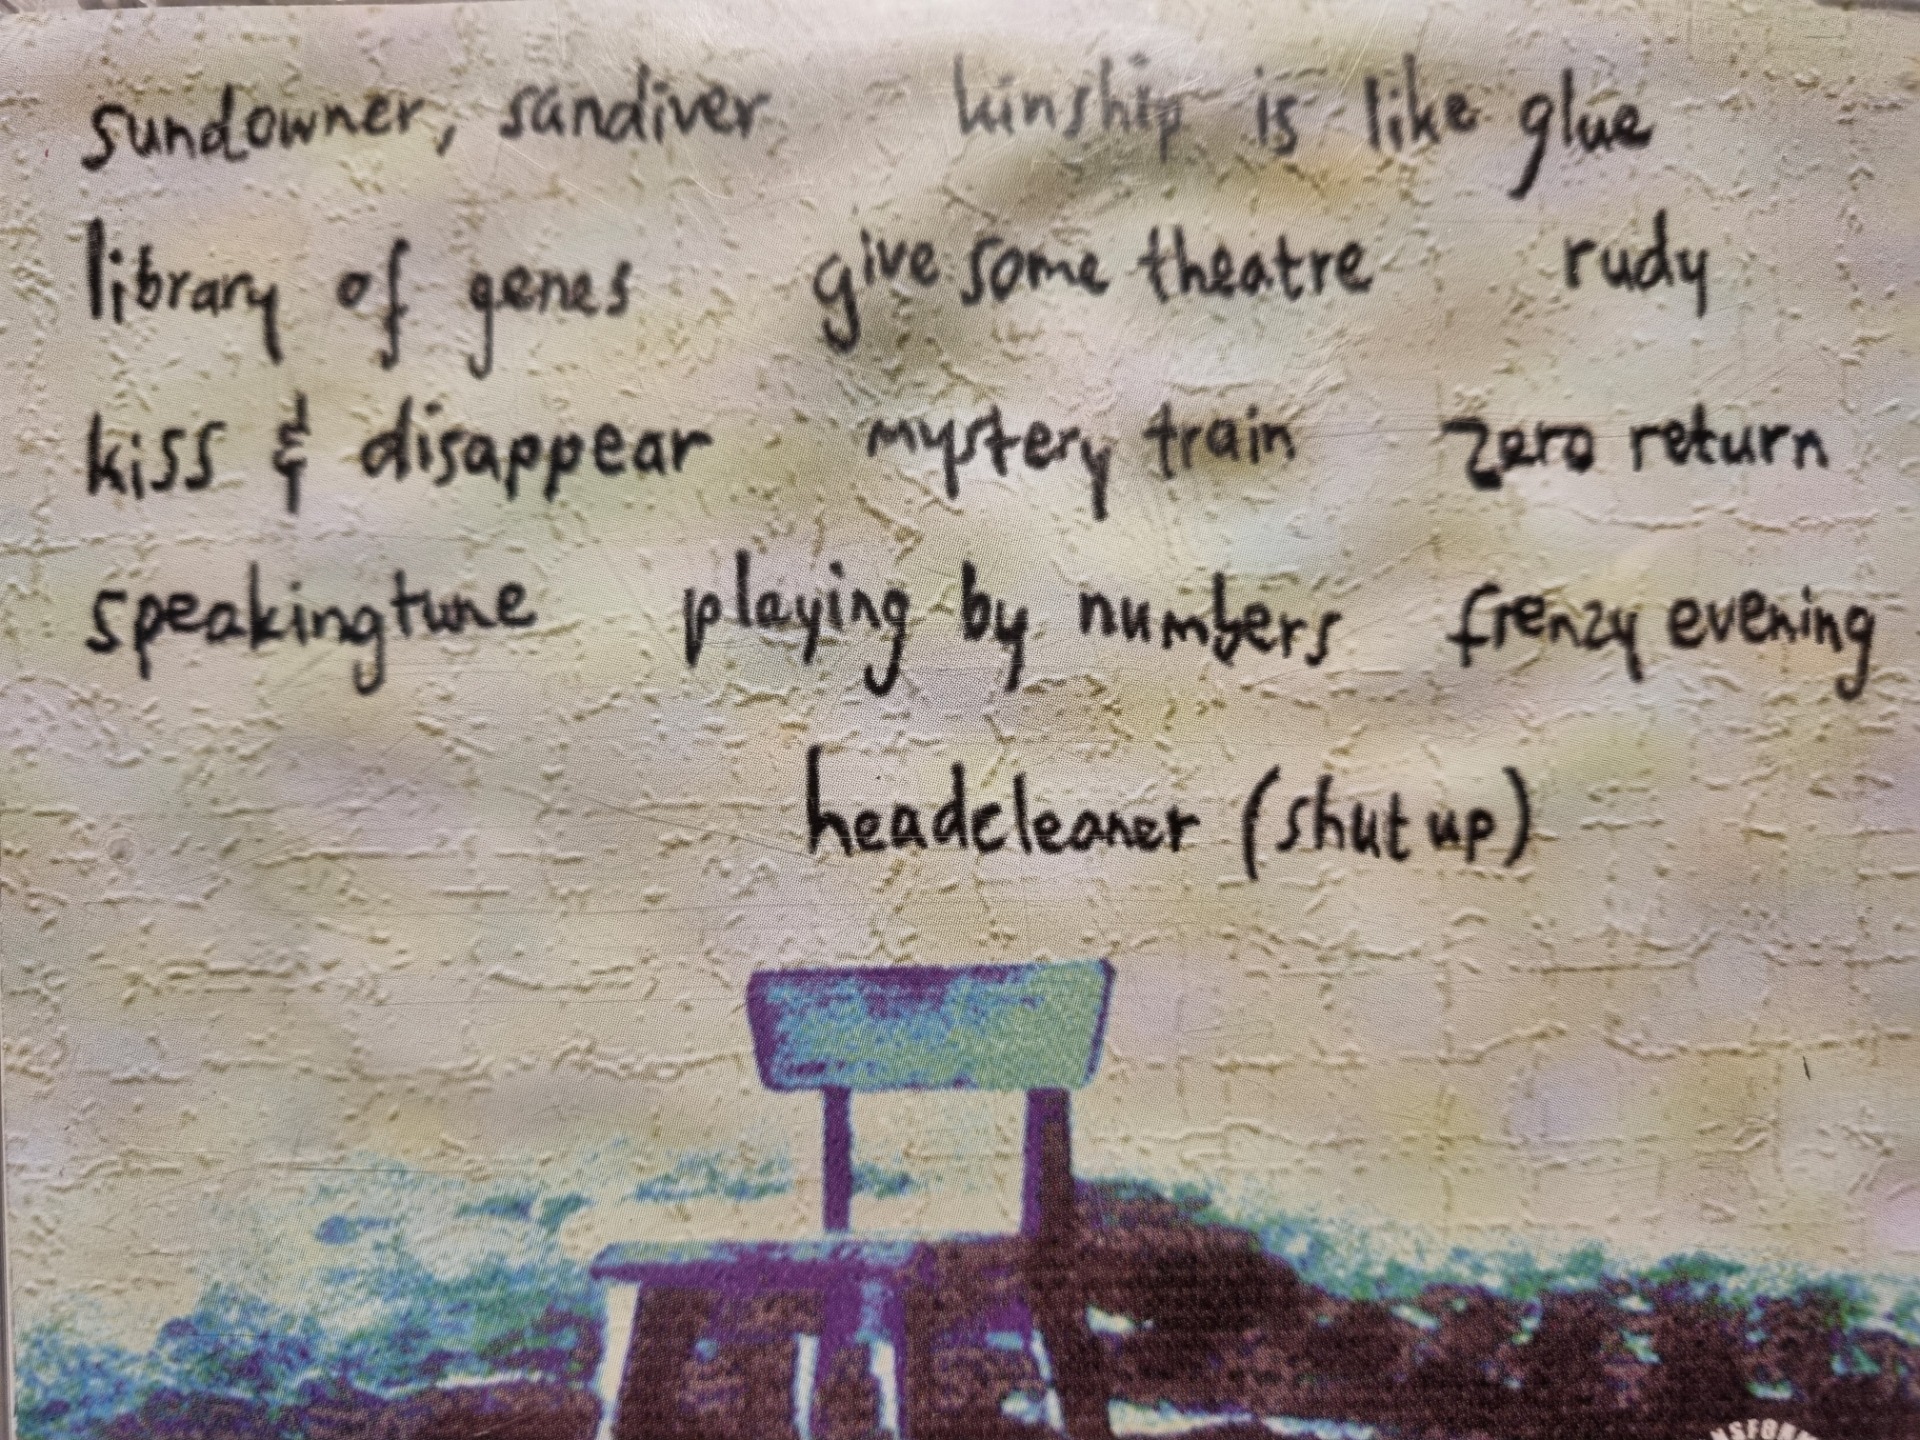 sundowner, sandiver kinship is like glue
library of genes give some theatre rudy
kiss & disappear mystery train zero return
speakingtune playing by numbers frenzy evening
headcleaner (shut up)